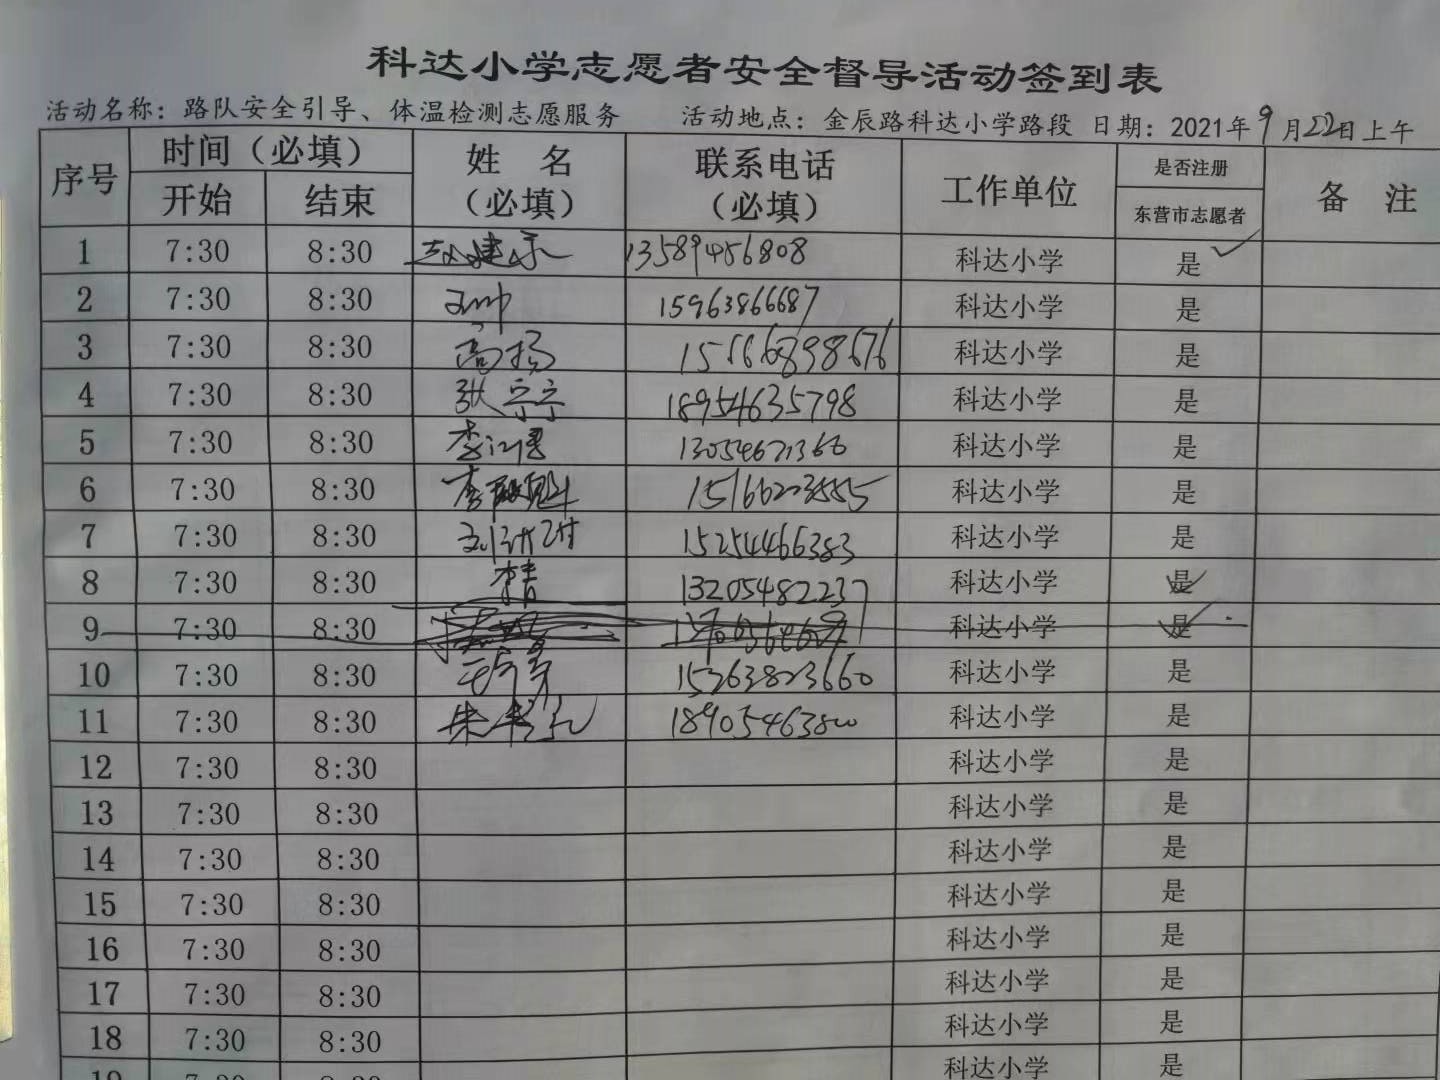 科达小学志愿者安全督导活动签到表
活动名称：路队安全引导、体温检测志愿服务 活动地点：金辰路科达小学路段 日期：2021年9月22日上午
序号 时间（必填） 姓名（必填） 联系电话（必填） 工作单位 是否注册 备注
开始 结束 东营市志愿者
1 7:30 8:30 13589456808 科达小学 是
2 7:30 8:30 15963866687 科达小学 是
3 7:30 8:30 高扬 15166898676 科达小学 是
4 7:30 8:30 张宁宁 18954635798 科达小学 是
5 7:30 8:30 李 科达小学 是
6 7:30 8:30 李 科达小学 是
7 7:30 8:30 刘 15254466383 科达小学 是
8 7:30 8:30 李青 13205482237 科达小学 是
9 7:30 8:30 科达小学 是
10 7:30 8:30 15263823660 科达小学 是
11 7:30 8:30 朱 18905463800 科达小学 是
12 7:30 8:30 科达小学 是
13 7:30 8:30 科达小学 是
14 7:30 8:30 科达小学 是
15 7:30 8:30 科达小学 是
16 7:30 8:30 科达小学 是
17 7:30 8:30 科达小学 是
18 7:30 8:30 科达小学 是
19 7:30 8:30 科达小学 是